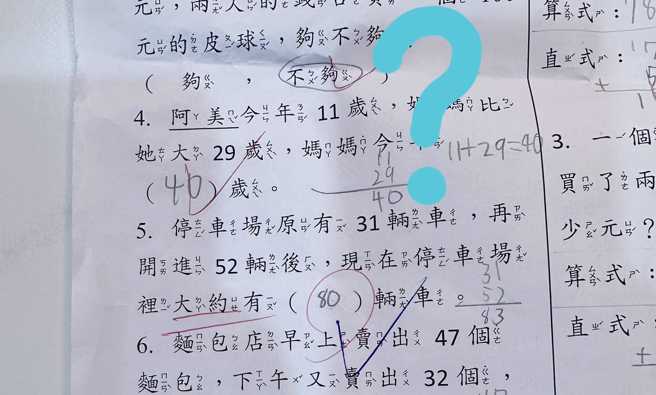 元的皮球,夠不夠
( 夠 , 不夠 )
4. 阿美今年 11 歲,媽媽比
她大 29 歲,媽媽今
11+29=40
11
29
40
(40) 歲。
5. 停車場原有 31 輛車,再
開進 52 輛後,現在停車場
裡大約有 ( 80 ) 輛車。
31
52
83
6. 麵包店早上賣出 47 個
麵包,下午又賣出 32 個,
算式:78
直式:
3. 一個
買了兩
少元?
算式:
直式: